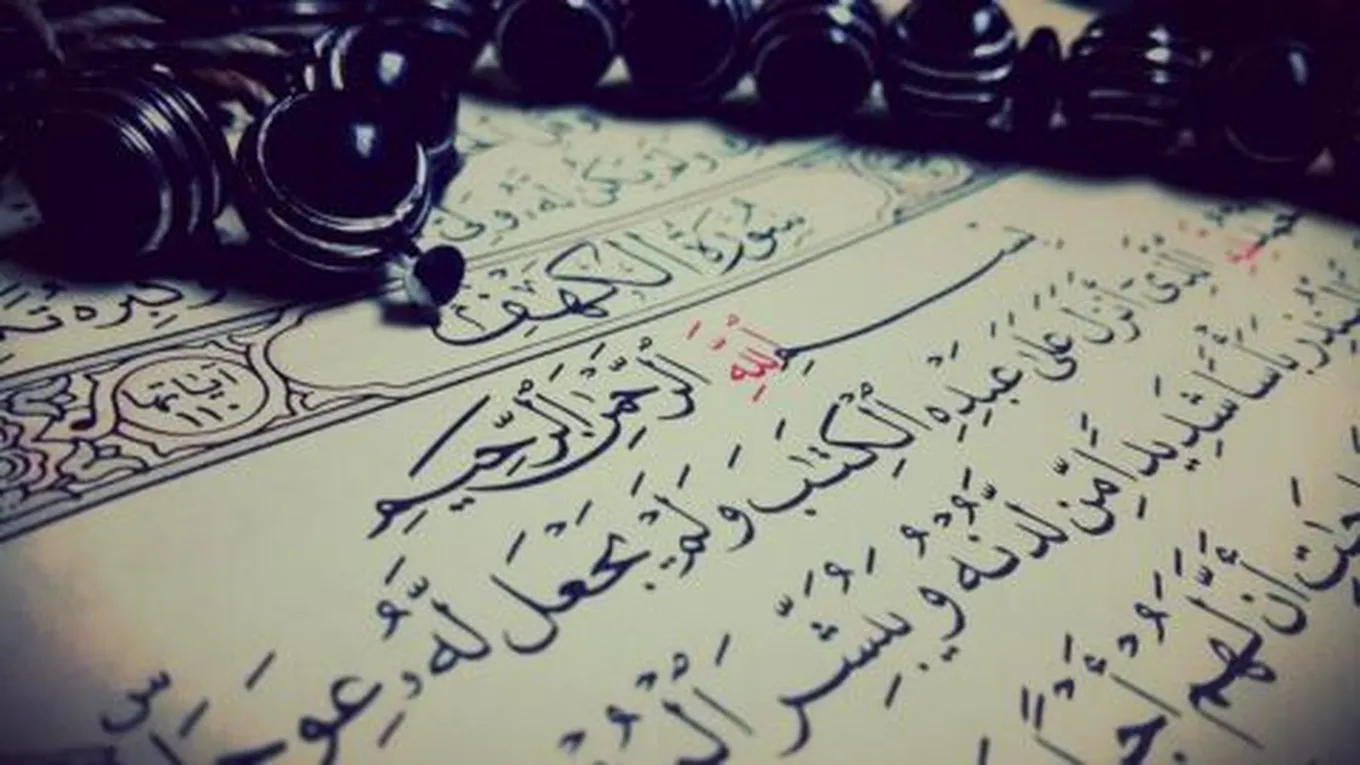 وَلَمْ يَكُن لَّهُۥ وَلِىٌّ
سُورَةُ الكَهْفِ
آيَاتُهَا ١١٠
بِسْمِ ٱللَّهِ ٱلرَّحْمَٰنِ ٱلرَّحِيمِ
لِلَّهِ ٱلَّذِىٓ أَنزَلَ عَلَىٰ عَبْدِهِ ٱلْكِتَٰبَ وَلَمْ يَجْعَل لَّهُۥ عِوَجَاۜ
لِّيُنذِرَ بَأْسًا شَدِيدًا مِّن لَّدُنْهُ وَيُبَشِّرَ
أَنَّ لَهُمْ أَجْرًا